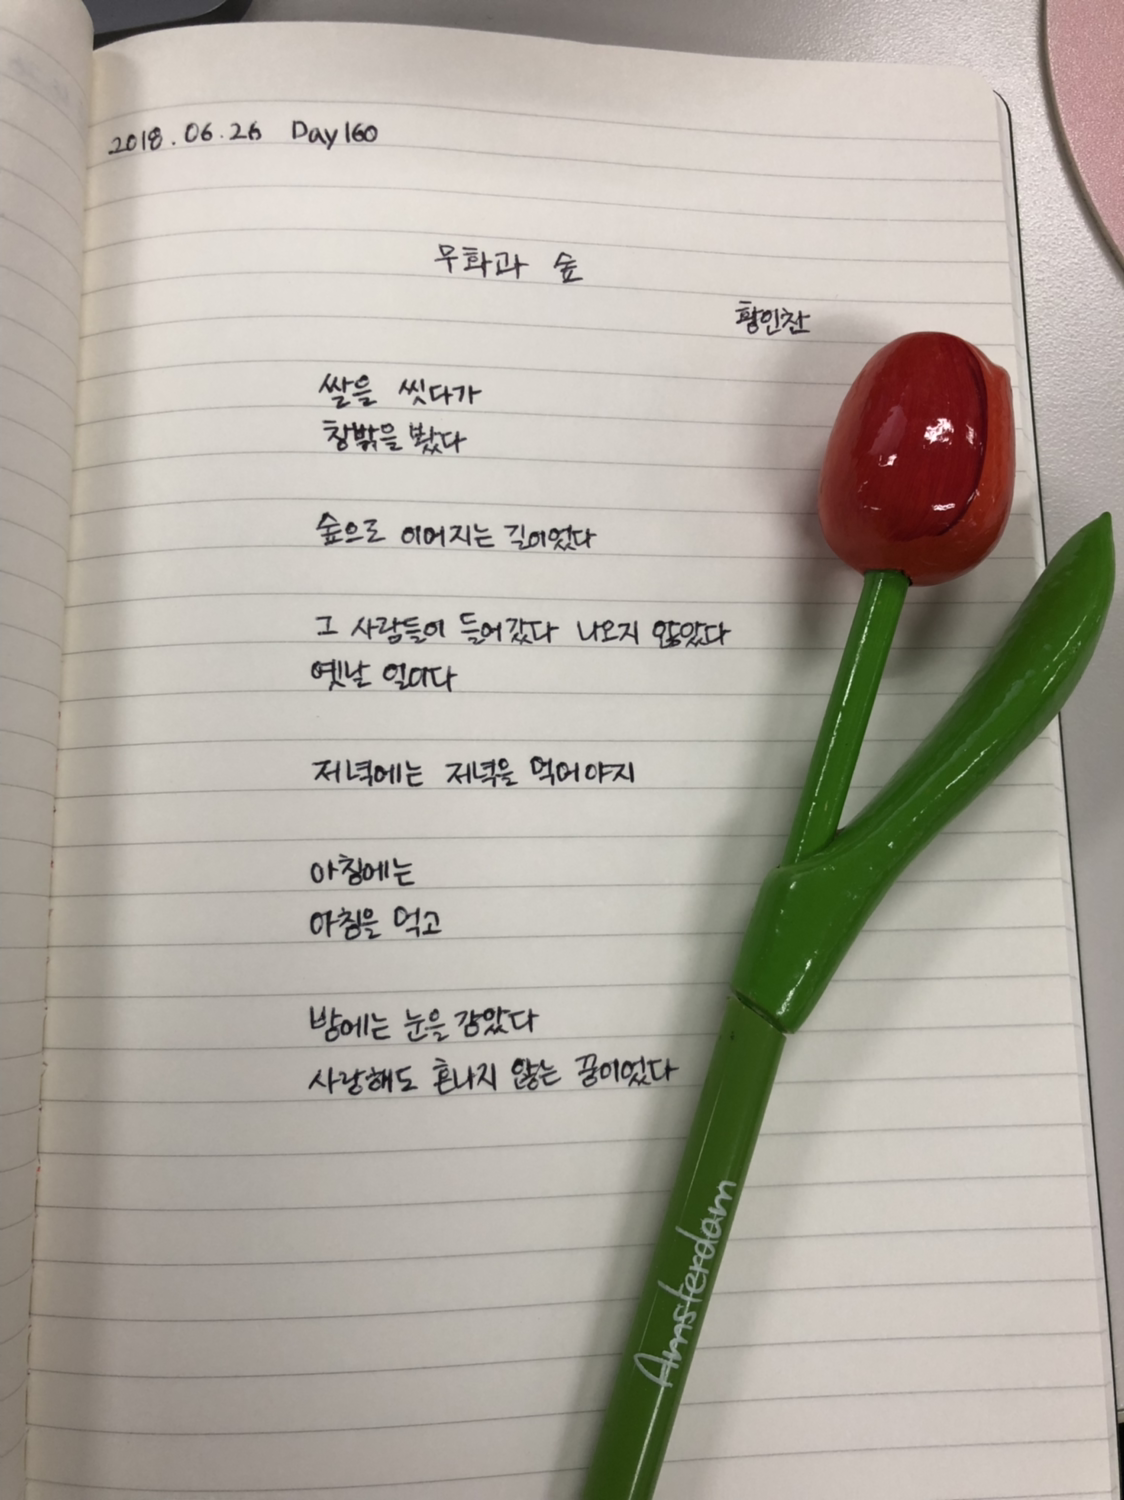 2018.06.26 Day160
무화과 숲
황인찬
쌀을 씻다가
창밖을 봤다
숲으로 이어지는 길이었다
그 사람들이 들어갔다 나오지 않았다
옛날 일이다
저녁에는 저녁을 먹어야지
아침에는
아침을 먹고
밤에는 눈을 감았다
사랑해도 혼나지 않는 꿈이었다
Amsterdam